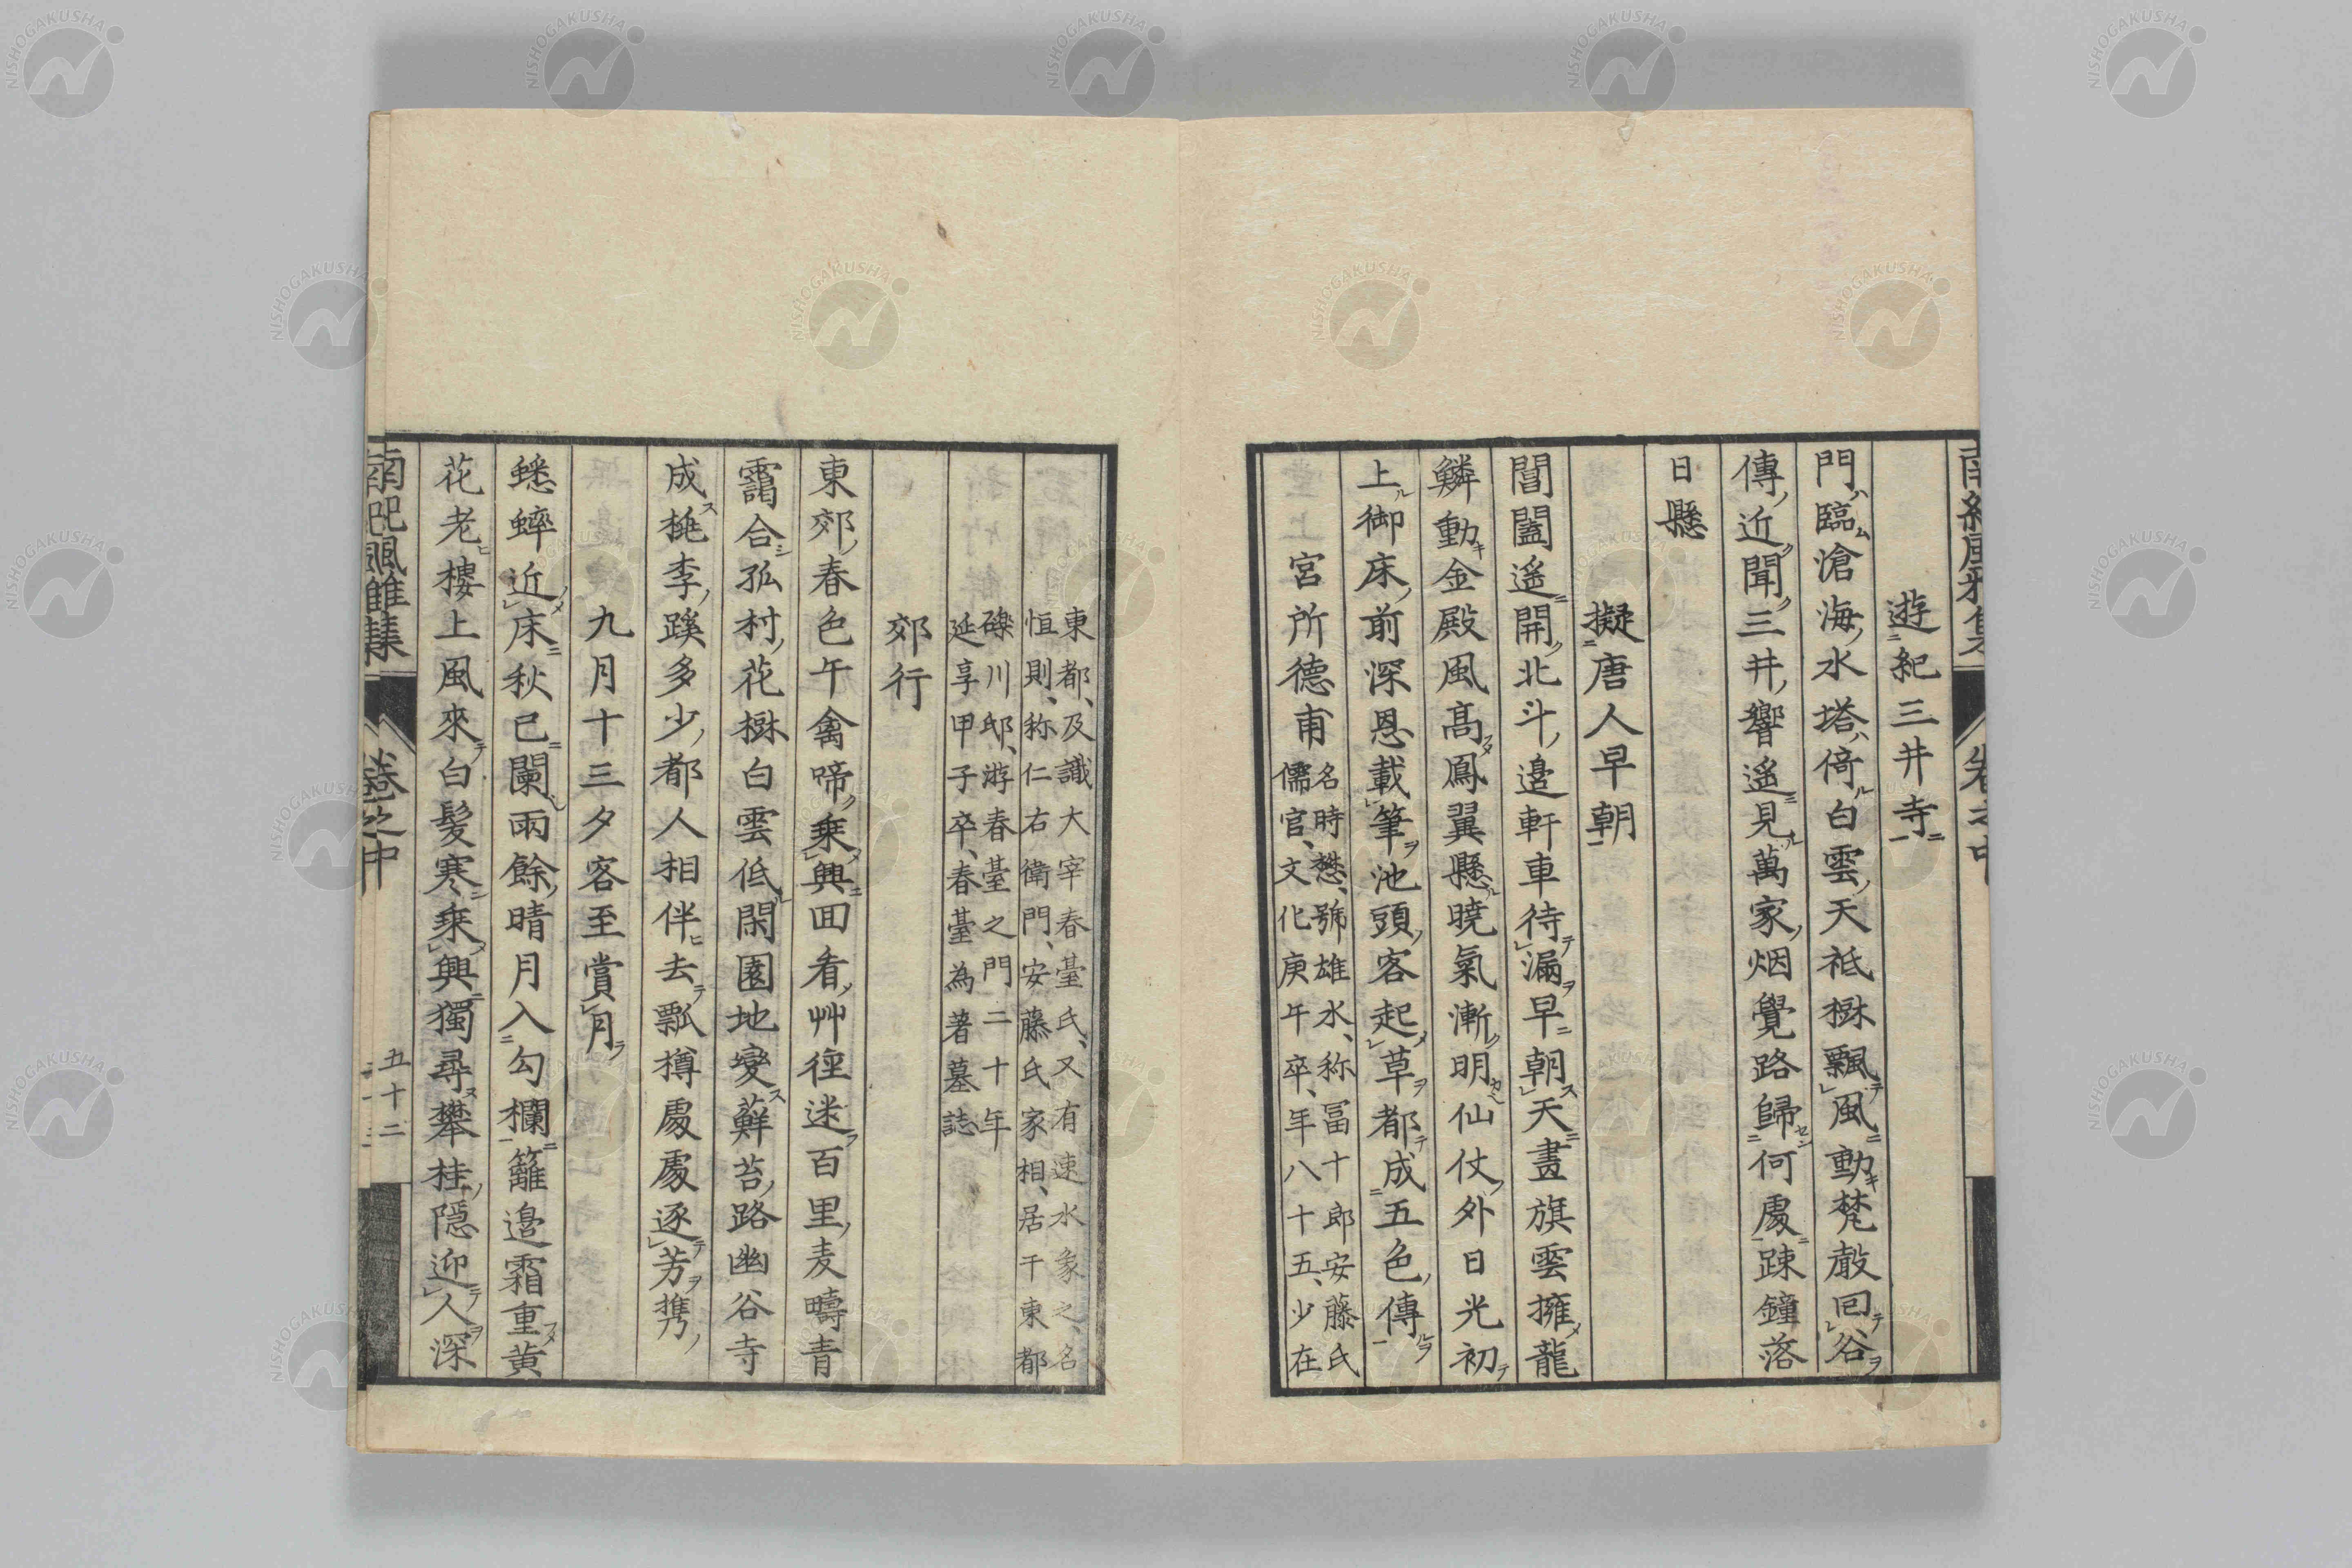 遊紀三井寺
門臨滄海水塔倚白雲天祗樹飄風動梵聲回谷
傳近聞三井響遙見萬家烟覺路歸何處踈鐘落
日懸
擬唐人早朝
閶闔遙開北斗邊軒車待漏早朝天晝旗雲擁龍
鱗動金殿風高鳳翼懸曉氣漸明仙仗外日光初
上御床前深恩載筆池頭客起草都成五色傳
宮所德甫
名時懋、號雄水、称冨十郎安藤氏
儒官、文化庚午卒、年八十五、少在
東都、及識大宰春臺氏、又有速水象之、名
恒則、称仁右衛門、安藤氏家相、居于東都
礫川邸、游春臺之門二十年
延享甲子卒、春臺為著墓誌
郊行
東郊春色午禽啼乗興回看艸徑迷百里麦疇青
靄合孤村花樹白雲低閑園地變蘚苔路幽谷寺
成桃李蹊多少都人相伴去瓢樽處處逐芳携
九月十三夕客至賞月
蟋蟀近床秋已闌雨餘晴月入勾欄籬邉霜重黄
花老樓上風來白髪寒乗興獨尋攀桂隠迎人深
南紀風雅集
卷之中
五十二
NISHOGAKUSHA